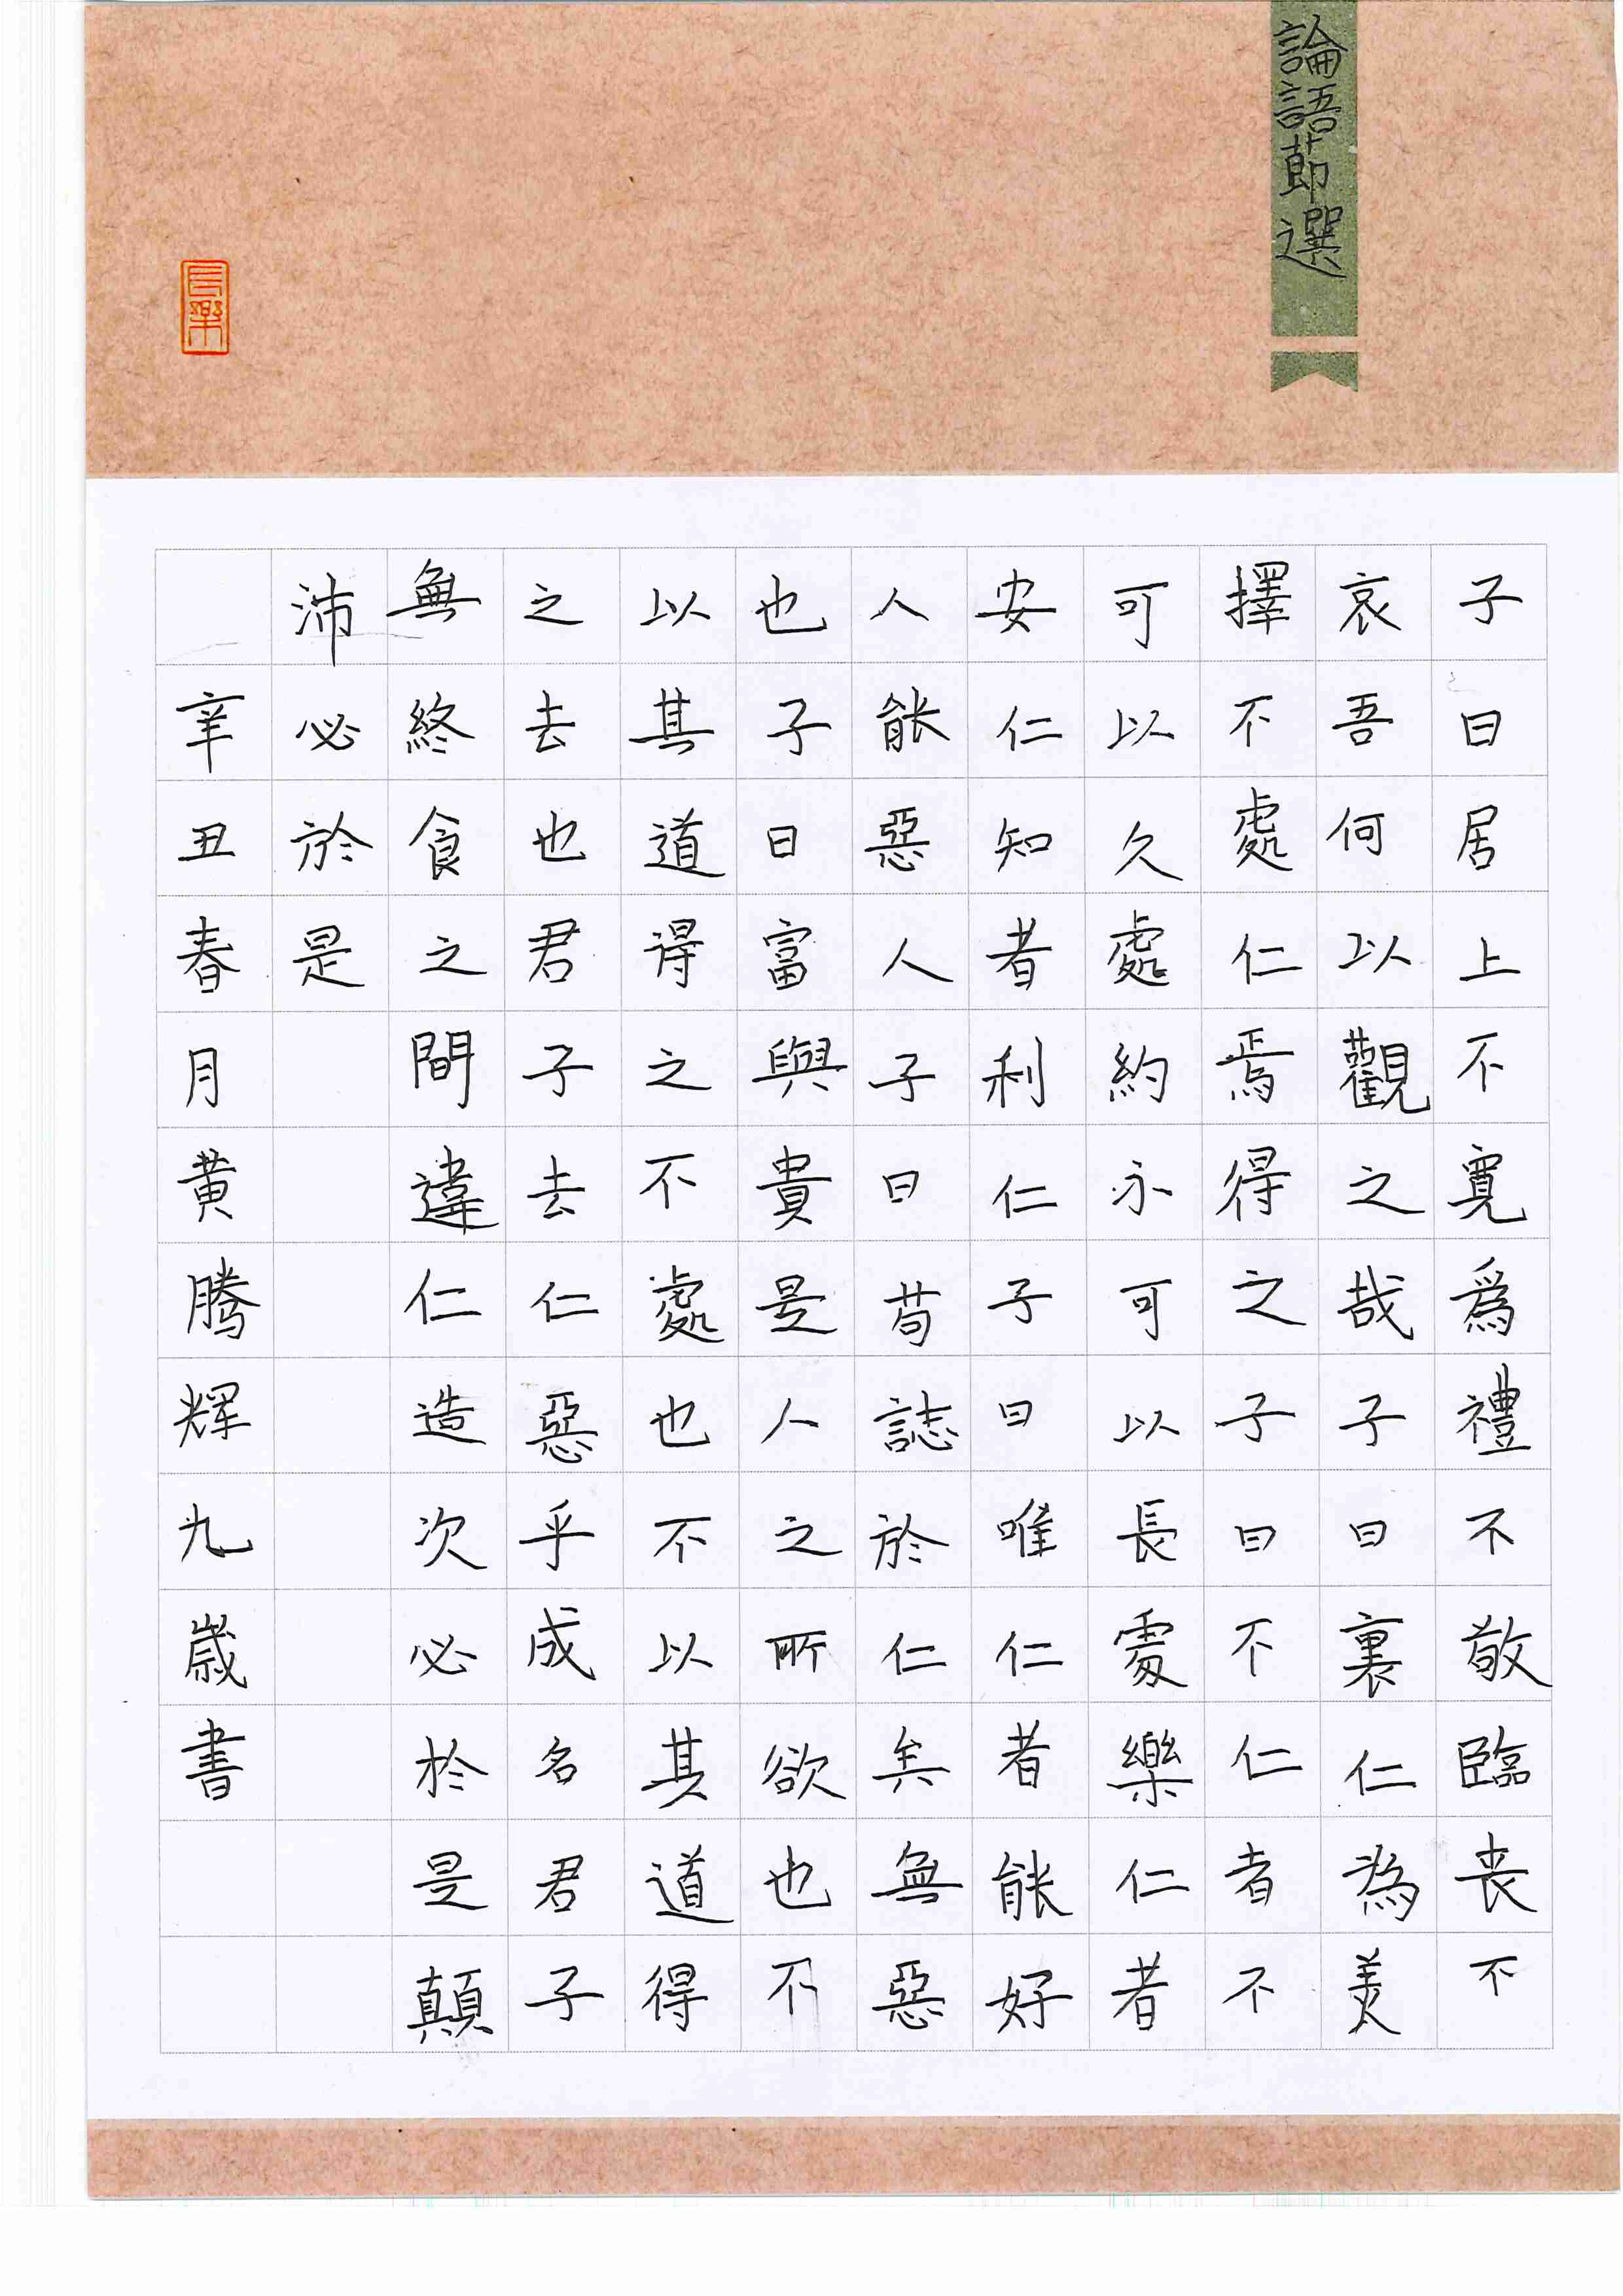 論語節選
子曰居上不寬爲禮不敬臨丧不
哀吾何以觀之哉子曰裏仁為美
擇不處仁焉得之子曰不仁者不
可以久處約亦可以長處樂仁者
安仁知者利仁子曰唯仁者能好
人能惡人子曰苟誌於仁矣無惡
也子曰富與貴是人之所欲也不
以其道得之不處也不以其道得
之去也君子去仁惡乎成名君子
無終食之間違仁造次必於是顛
沛必於是
辛丑春月黄腾辉九歲書